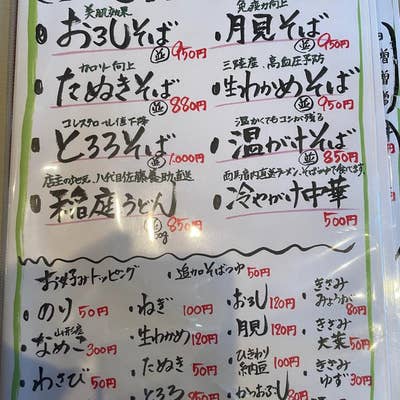 美肌効果
おろしそば
並 950円
免疫力向上
月見そば
並 950円
カロリー向上
たぬきそば
並 880円
三陸産、高血圧予防
生わかめそば
並 950円
コレステロール値下降
とろろそば
並 1,000円
温かくてもコシが残る
温がけそば
並 850円
店主の地元、八代目佐藤養助直送
稲庭うどん
850円
西馬音内直送ラーメン、そばつゆで食べます。
冷やがけ中華
500円
お好みトッピング
・追加そばつゆ 50円
・のり 50円
・ねぎ 100円
・おろし 120円
・きざみみょうが 80円
山形産
・なめこ 300円
・生わかめ 120円
・月見 120円
・きざみ大葉 50円
・わさび 50円
・たぬき 50円
・ひきわり納豆 100円
・きざみゆず 30円
・とろろ
・かつおぶし